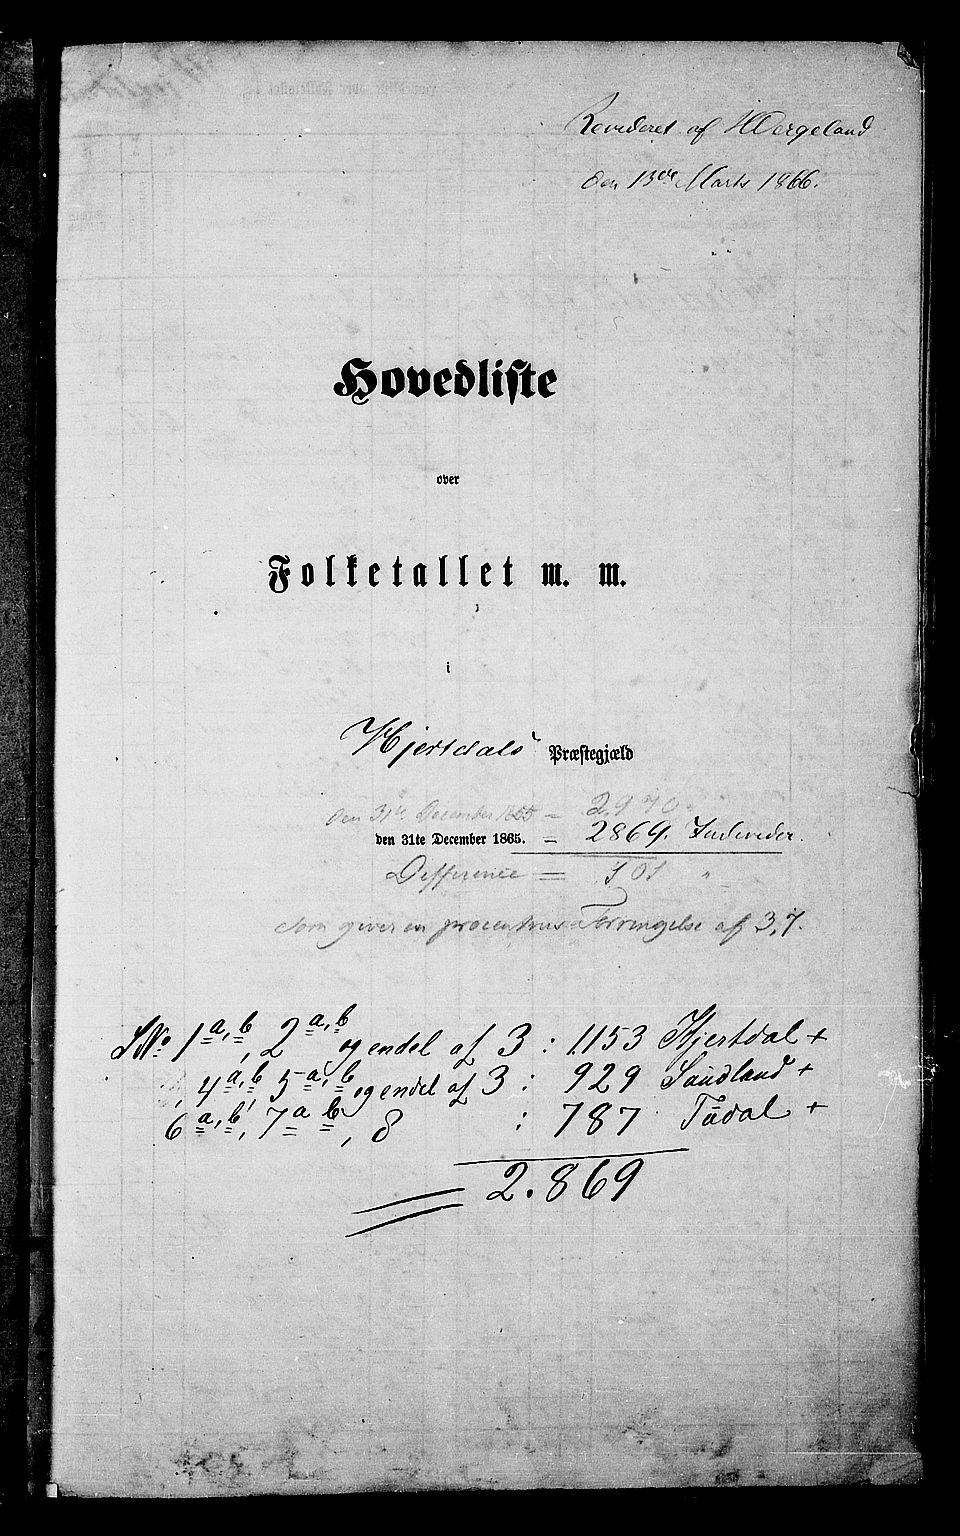 Revideret af HWergeland
den 13de Marts 1866.
Hovedliste
over
Folketallet m. m.
i
Hjertdals Præstegjæld
den 31te December 1855 = 2970 "
den 31te December 1865. = 2869. Individer.
Differense = 101 "
som giver en procentvis Forringelse af 3,7.
SNo 1a,b, 2a,b og endel af 3 : 1153 Hjertdal +
", 4a,b, 5a,b og endel af 3 : 929 Saudland +
6a,b, 7a b, 8 : 787 Tudal +
2.869